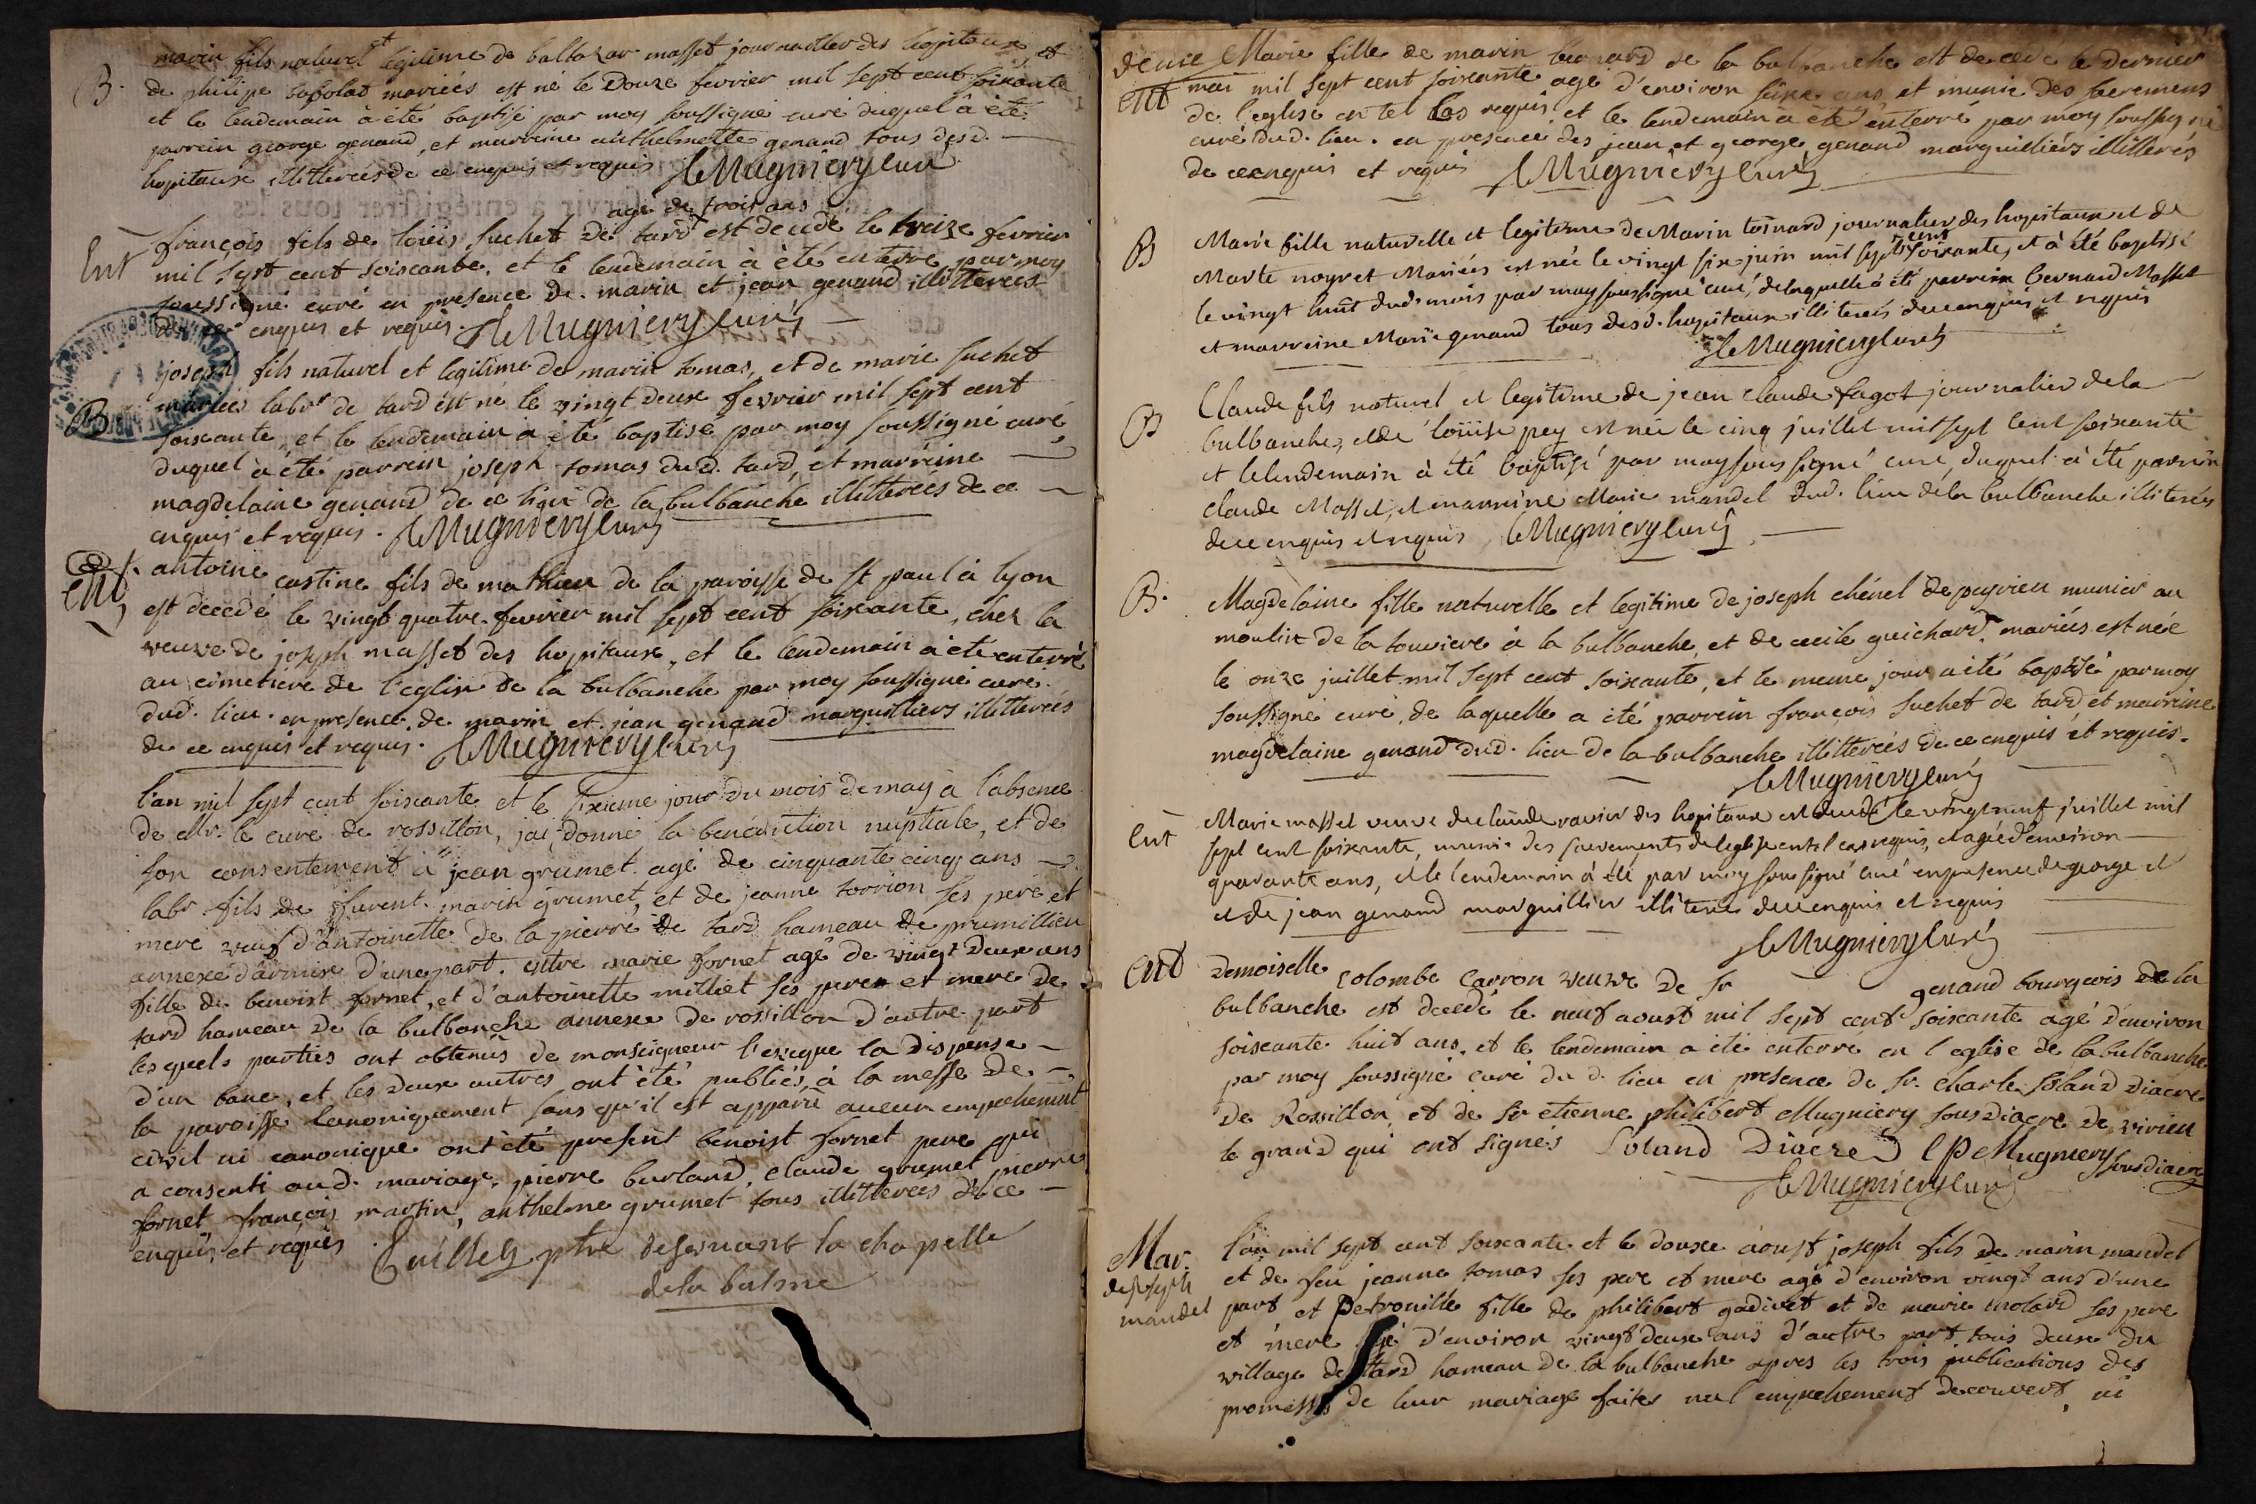 B.
marin fils naturel et legitime de baltazar masset journallier des hopitaux et
de philipe sabolat mariées est né le Douze fevrier mil sept cent soixante
et le lendemain à été baptisé par moy soussigné curé duquel à été
parrein george genand, et marreine anthelmette genand tous desd.
hopitaux illitterées de ce enquis et requis
Mugniery curé
Ent
agé de trois ans
françois fils de loüis suchet de tard est decedé le treize fevrier
mil sept cent soixante, et le lendemain à été enterré par moy
soussigné curé en présence de marin et jean genand illitterées
de ce enquis et requis. Mugniery curé
B
joseph fils naturel et legitime de marin tomas, et de marie suchet
mariées labr de tard est né le vingt deux fevrier mil sept cent
soixante, et le lendemain a été baptisé par moy soussigné curé
duquel à été parrein joseph tomas dud. tard, et marreine
magdelaine genand de ce lieu de la bulbanche illitterées de ce
enquis et requis. Mugniery curé
Ent
antoine castine fils de mathieu de la paroisse de st paul à lyon
est decedé le vingt quatre fevrier mil sept cent soixante, chez la
veuve de joseph masset des hopitaux, et le lendemain à été enterré
au cimetiere de l'eglise de la bulbanche par moy soussigné curé
dud. lieu. en presence de marin et jean genand marguilliers illitterées
de ce enquis et requis. Mugniery curé
l'an mil sept cent soixante et le sixieme jour du mois de may à l'absence
de Mr. le curé de rossillon, jai donné la bénédiction nuptiale, et de
son consentement à jean grumet agé de cinquante cinq ans
labr fils de furent marin grumet, et de jeanne torrion ses pere et
mere veuf d'antoinette de la pierre de tard hameau de prumillieu
annexe d'armix d'une part. entre marie fornet agé de vingt deux ans
fille de benoist fornet, et d'antoinette milliet ses peres et mere de
tard hameau de la bulbanche annexe de rossillon d'autre part
lesquels parties ont obtenûs de monseigneur l'eveque la dispense
d'un banc, et les deux autres ont été publiés à la messe de
la paroisse Canoniquement sans qu'il est apparû aucun empechement
civil ni canonique ont été present benoist fornet pere qui
a consenti aud. mariage, pierre burland, claude grumet pierre
fornet françois martin, anthelme grumet tous illitterées de ce
enquis et requis. Guilley ptre desservant la chapelle
de la balme
Ent
deux Marie fille de marin de la bulbanche est decedé le dernier
mai mil sept cent soixante agé d'environ seize ans et munie des sacremens
de l'eglise en tel cas requis, et le lendemain a été enterré par moy soussigné
curé dud. lieu. en presence des jean et george genand marguilliers illitterés
de ce enquis et requis Mugniery curé
B
Marie fille naturelle et legitime de Marin toinard journalier des hopitaux et de
Marte noyret Mariées est née le vingt six juin mil sept cent soixante, et à été baptisé
le vingt huit dud. mois par moy soussigné curé, de laquelle à été parrein bernard Masset
et marreine Marie genand tous desd. hopitaux illiterés de ce enquis et requis
Mugniery curé
B
Claude fils naturel et legitime de jean claude fagot journalier de la
bulbanche, et de loüise pey est née le cinq juillet mil sept cent soixante
et le lendemain à été baptisé par moy soussigné curé, duquel à été parrein
claude Masset, et marreine Marie mandel dud. lieu de la bulbanche illiterés
de ce enquis et requis Mugniery curé
B.
Magdelaine fille naturelle et legitime de joseph chénel de peyrieu munier au
moulin de la touviere à la bulbanche, et de cecile guichard mariées est née
le onze juillet mil sept cent soixante, et le meme jour a été baptisé par moy
soussigné curé, de laquelle a été parrein françois suchet de tard et marreine
magdelaine genand dud. lieu de la bulbanche illitterées de ce enquis et requis.
Mugniery curé
Ent
Marie masset veuve de claude ravier des hopitaux est decedé le vingt neuf juillet mil
sept cent soixante, munie des sacrements de leglise en tel cas requis, et agée d'environ
quarante ans, et le lendemain à été par moy soussigné curé en presence de george et
et de jean genand marguillier illiteres de ce enquis et requis
Mugniery curé
Ent
Demoiselle colombe Carron veuve de Sr genand bourgeois de la
bulbanche est decedé le neuf aoust mil sept cent soixante agé d'environ
soixante huit ans, et le lendemain a été enterré en l'eglise de la bulbanche
par moy soussigné curé du d. lieu en presence de Sr. charle Soland Diacre
de Rossillon, et de Sr etienne philibert Mugniery sousdiacre de virieu
le grand qui ont signés Soland Diacre E P Mugniery sousdiacre
Mugniery curé
Mar.
de joseph
mandel
l'an mil sept cent soixante et le douze aoust joseph fils de marin mandel
et de feu jeanne tomas ses pere et mere agé d'environ vingt ans d'une
part et Petronille fille de philibert gadivet et de marie molard ses pere
et mere agé d'environ vingt deux ans d'autre part tous deux du
village de tard hameau de la bulbanche apres les trois publications des
promesses de leur mariage faites nul empechement decouvert, ni